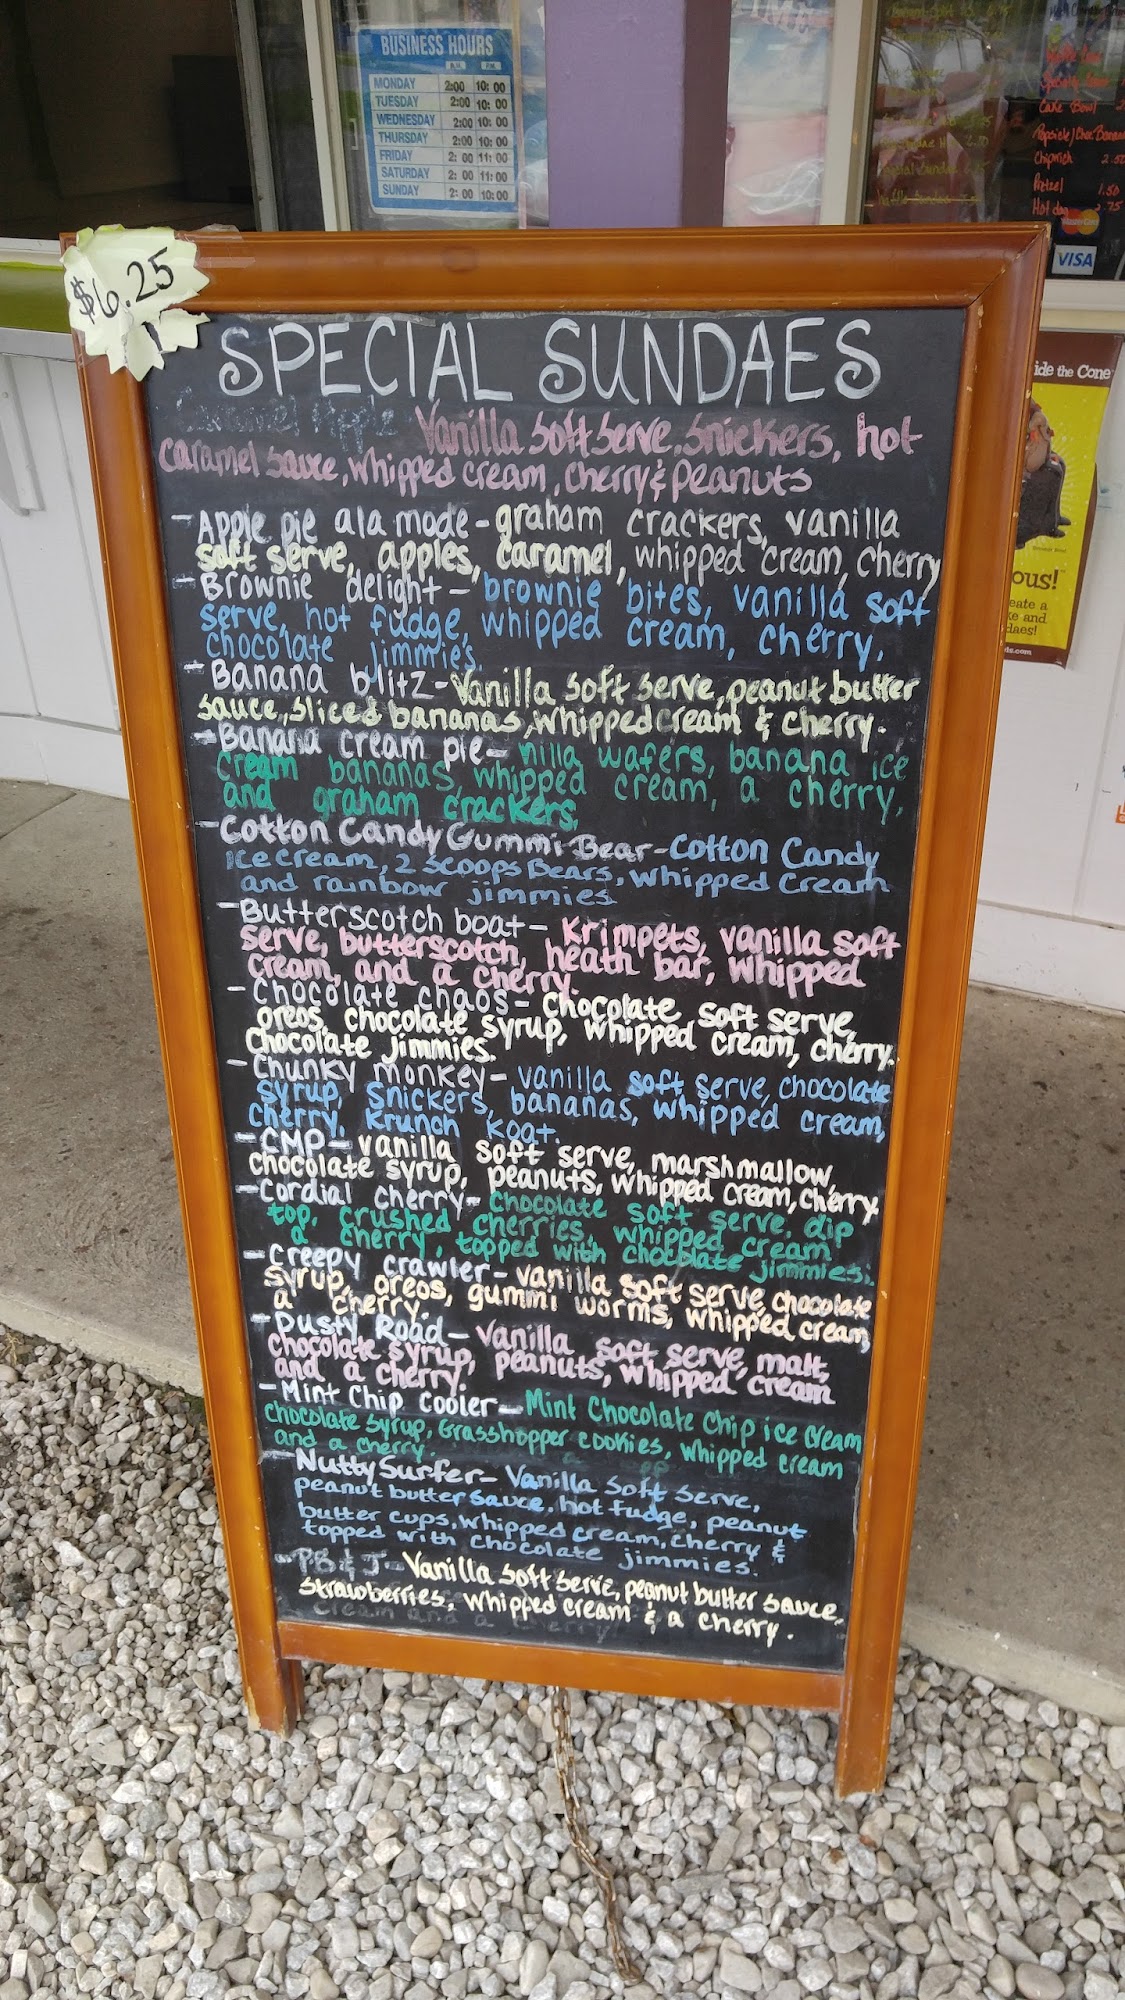 BUSINESS HOURS
A.M. P.M.
MONDAY 2:00 10:00
TUESDAY 2:00 10:00
WEDNESDAY 2:00 10:00
THURSDAY 2:00 10:00
FRIDAY 2:00 11:00
SATURDAY 2:00 11:00
SUNDAY 2:00 10:00
Cake Bowl
Popsicle/Choc Banana
Chipwich 2.50
Pretzel 1.50
Hot dog 2.75
MasterCard
VISA
$6.25
SPECIAL SUNDAES
Caramel Apple Vanilla Soft Serve, Snickers, hot
caramel sauce, whipped cream, cherry & peanuts
-Apple pie ala mode-graham crackers, vanilla
soft serve, apples, caramel, whipped cream, cherry
-Brownie delight-brownie bites, vanilla soft
serve, hot fudge, whipped cream, cherry,
chocolate jimmies.
-Banana blitz-Vanilla soft serve, peanut butter
sauce, sliced bananas, whipped cream & cherry.
-Banana cream pie-nilla wafers, banana ice
cream bananas, whipped cream, a cherry,
and graham crackers.
-Cotton Candy Gummi Bear-Cotton Candy
Ice cream, 2 scoops Bears, whipped Cream
and rainbow jimmies
-Butterscotch boat-Krimpets, vanilla soft
serve, butterscotch, heath bar, whipped
cream, and a cherry.
-Chocolate chaos-Chocolate soft serve,
oreos, chocolate syrup, whipped cream, cherry.
chocolate jimmies.
-Chunky monkey-vanilla soft serve, chocolate
syrup, Snickers, bananas, whipped cream,
cherry, krunch koat.
-CMP-vanilla soft serve, marshmallow,
chocolate syrup, peanuts, whipped cream, cherry.
-Cordial cherry-chocolate soft serve, dip
top, crushed cherries, whipped cream
a cherry, topped with chocolate jimmies.
-Creepy crawler-vanilla soft serve, chocolate
syrup, oreos, gummi worms, whipped cream,
a cherry.
-Dusty Road-Vanilla soft serve, malt,
chocolate syrup, peanuts, whipped cream
and a cherry.
-Mint Chip Cooler-Mint Chocolate Chip ice cream
chocolate syrup, Grasshopper cookies, whipped cream
and a cherry.
-Nutty Surfer-Vanilla soft serve,
peanut butter sauce, hot fudge, peanut
butter cups, whipped cream, cherry &
topped with chocolate jimmies.
-PB & J-Vanilla soft serve, peanut butter sauce,
strawberries, whipped cream & a cherry.
cream and a cherry
ide the Cone
ous!
eate a
ke and
daes!